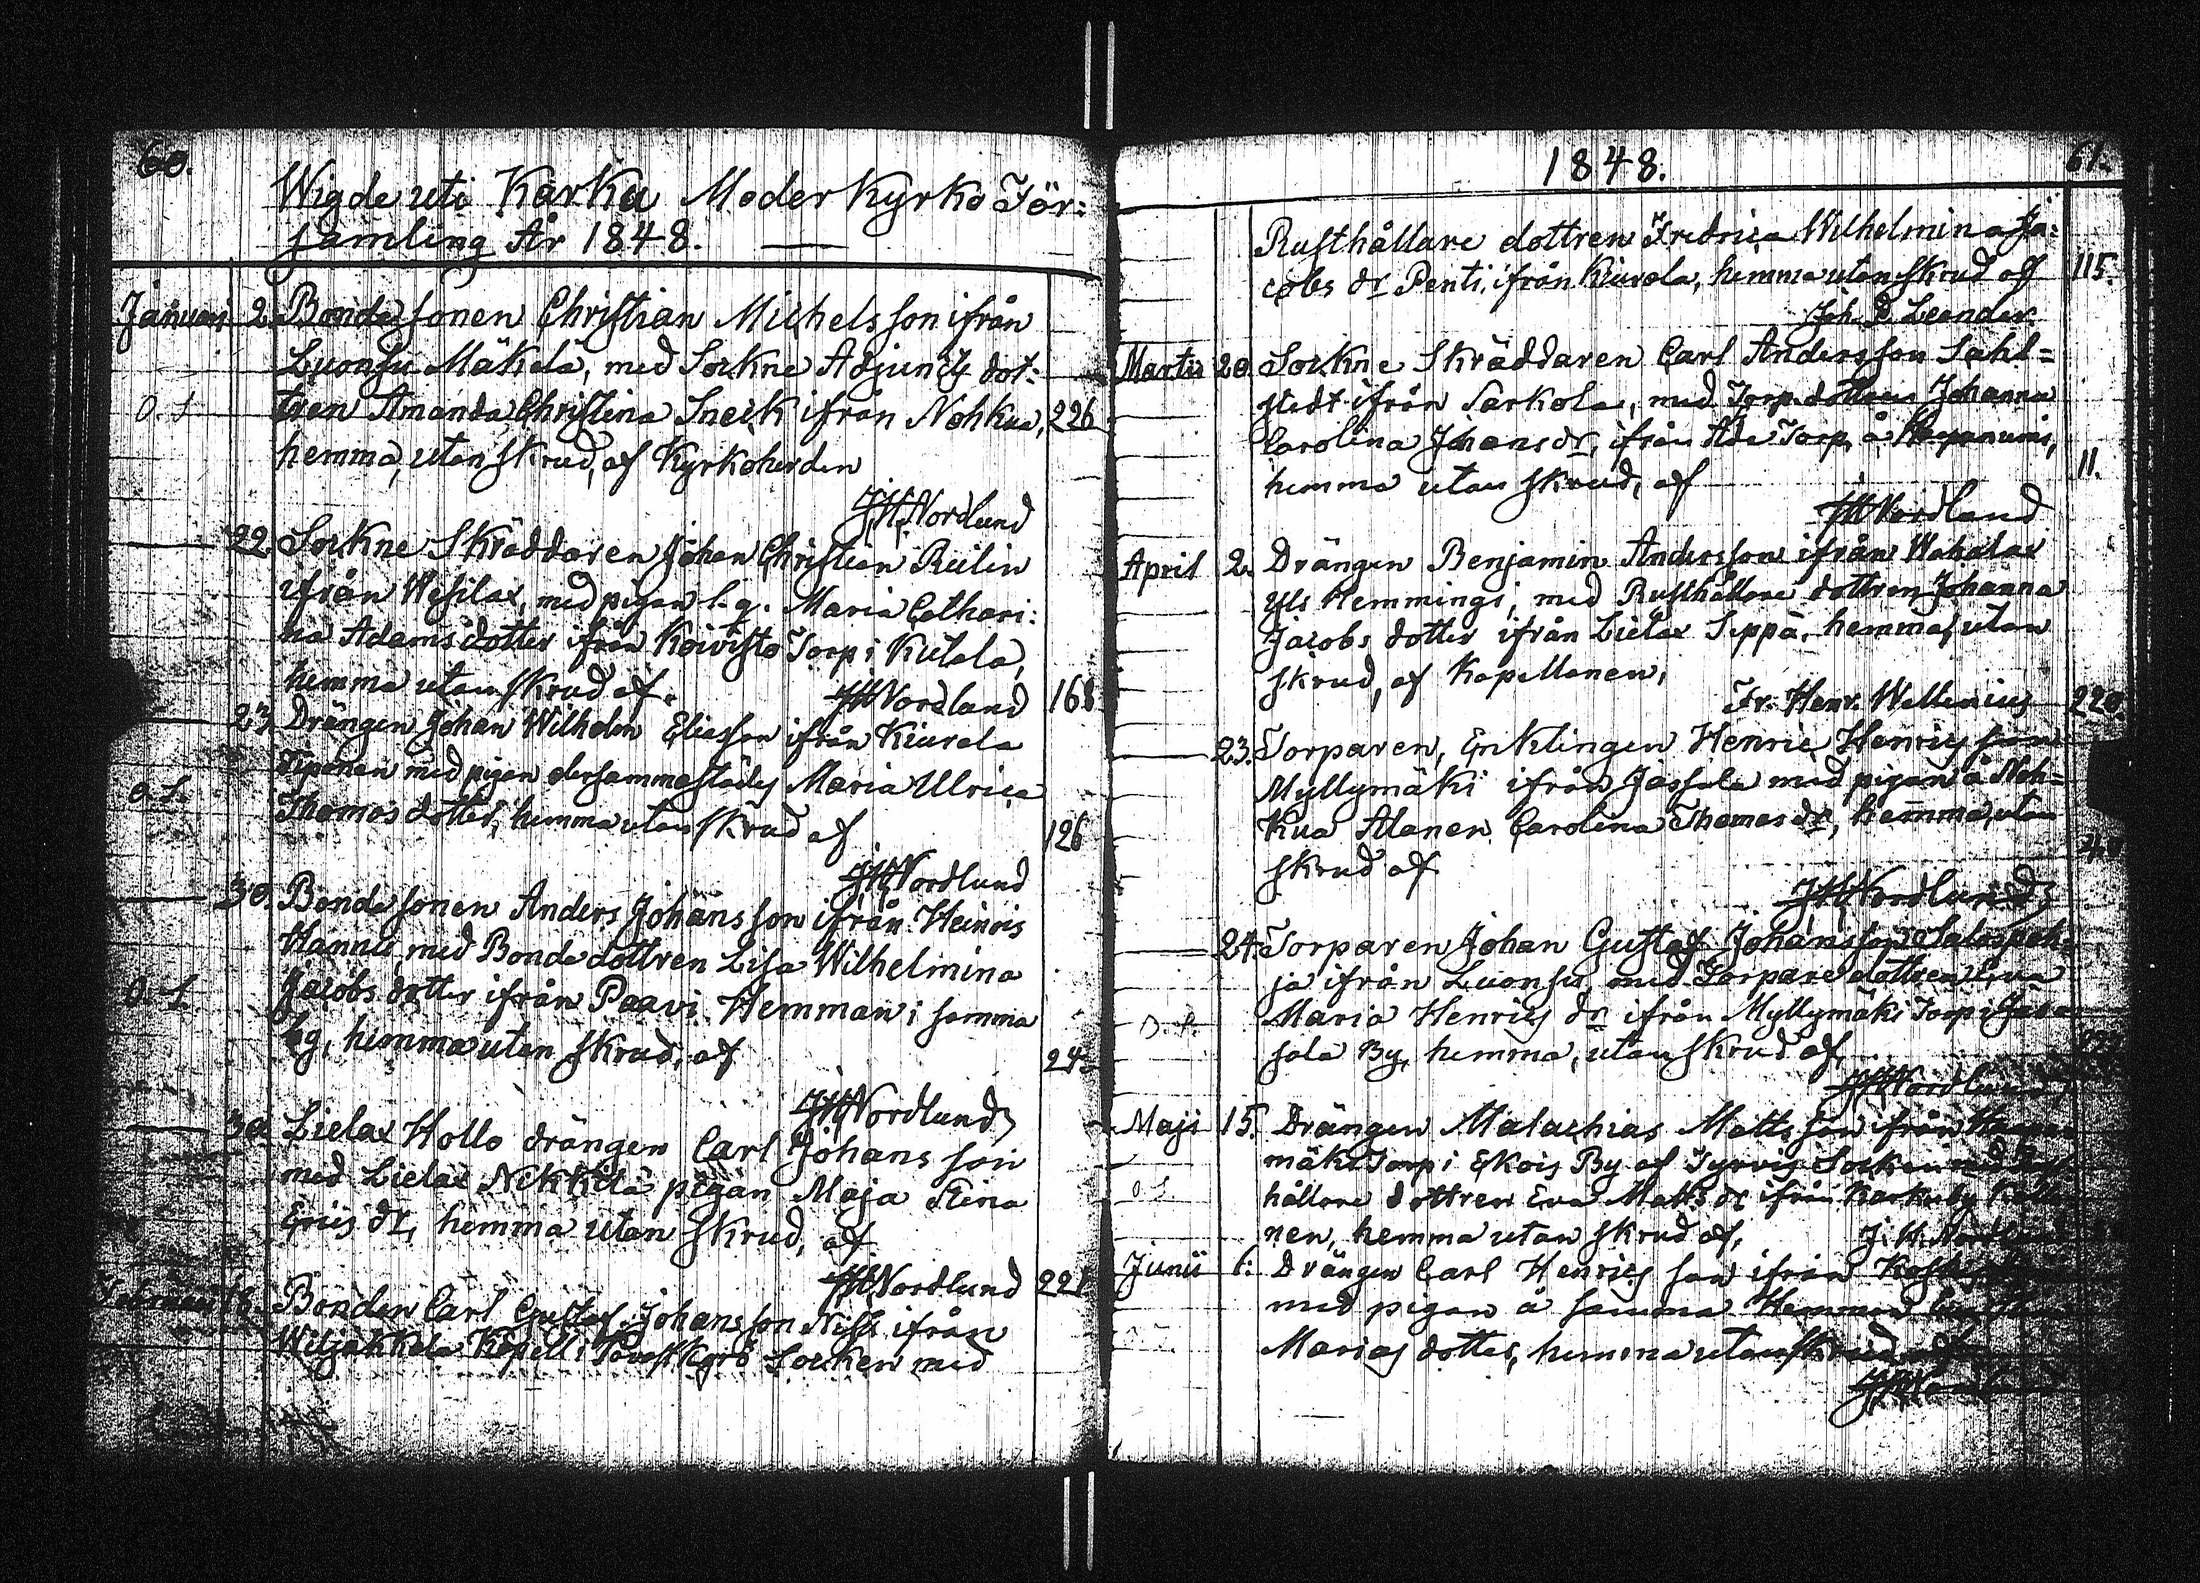 60.
Wigde uti Karku Moder Kyrko För:
samling År 1848.
Januari 2. Bonde sonen Christian Michelsson ifrån
Luonsu Mäkelä, med Sockne Adjuncts dot:
O. S. tren Amanda Christina Sneck ifrån Nohkua, 226
hemma, utan skrud, af Kyrkoherden
JHNordlund
22. Sockne Skräddaren Johan Christian Reilin
ifrån Wesilax, med pigan l. q. Maria Cathari:
na Adams dotter ifrån Koivisto Torp i Kutala,
hemma utan skrud af. JHNordlund 168
23. Drängen Johan Wilhelm Eliasson ifrån Kiurala
Tiponen med pigan dersammastädes Maria Ulrica
O. S. Thomas dotter, hemma utan skrud af 126
JHNordlund
30. Bonde sonen Anders Johansson ifrån Heinois
Hannus, med Bonde dottren Lisa Wilhelmina
O. S. Jacobs dotter ifrån Paavi Hemman i samma
by, hemma utan skrud, af 24
JHNordlund
30. Lielax Hollo drängen Carl Johansson
med Lielax Nikkilä pigan Maja Stina
Erics dr, hemma utan skrud, af
JHNordlund 221
Februari 16. Bonden Carl Gustaf Johansson Nissi ifrån
Wiljakkala Kapell i Tavastkyrö Socken med
1848. 61.
Rusthållare dottren Fredrica Wilhelmina Ja:
cobs dr Penti, ifrån Kiurala, hemma utan skrud af 115.
Joh. D. Leander
Martii 20. Sockne Skräddaren Carl Andersson Sahl=
stedt ifrån Sarkola, med Torp. dottren Johanna
Carolina Johans dr, ifrån Torp å
hemma utan skrud, af 11.
JHNordlund
April 2. Drängen Benjamin Andersson ifrån Wahalax
Yls Hemmingi, med Rusthållare dottren Johanna
Jacobs dotter ifrån Lielax Seppä, hemma, utan
skrud, af Kapellanen,
Fr. Henr. Wellenius 220.
23. Torparen, Enklingen Henric Henrics son
Myllymäki ifrån Jassala med pigan å Noh=
kua Alanen Carolina Thomas dr, hemma, utan
skrud af
JHNordlund
24. Torparen Johan Gustaf Johansson Salospoh=
ja ifrån Luonsu, med Torpare dottren Eva
O. S. Maria Henrics dr ifrån Myllymäki Torp i Jas=
sala By, hemma, utan skrud af
JHNordlund
Maji 15. Drängen Malachias Mattsson ifrån
mäki Torp i Ekois By af Tyrvis Socken med Rust
O S hållare dottren Eva Matts dr ifrån Karkuby
nen, hemma utan skrud af, J. H. Nordlund
Junii 1: Drängen Carl Henrics son ifrån
med pigan å samma Hemman
Marias dotter, hemma utan skrud af
JHNordlund